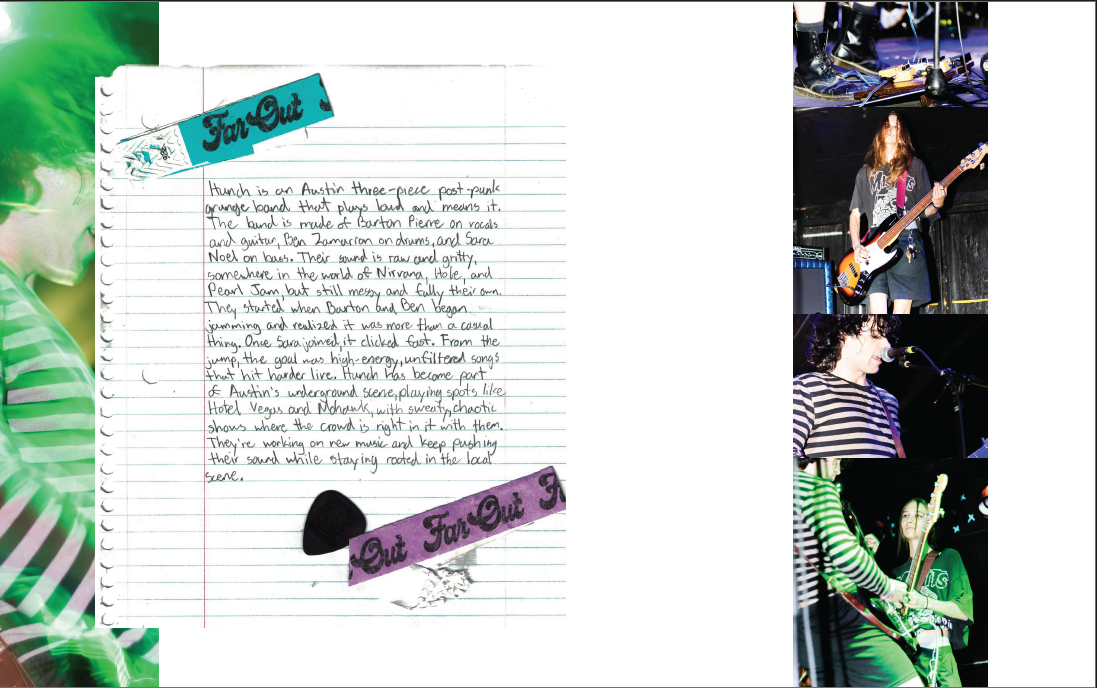 Far Out
Hunch is an Austin three-piece post-punk
grunge band that plays loud and means it.
The band is made of Barton Pierre on vocals
and guitar, Ben Zamarron on drums, and Sara
Noel on bass. Their sound is raw and gritty,
somewhere in the world of Nirvana, Hole, and
Pearl Jam, but still messy and fully their own.
They started when Barton and Ben began
jamming and realized it was more than a casual
thing. Once Sara joined, it clicked fast. From the
jump, the goal was high-energy, unfiltered songs
that hit harder live. Hunch has become part
of Austin's underground scene, playing spots like
Hotel Vegas and Mohawk, with sweaty, chaotic
shows where the crowd is right in it with them.
They're working on new music and keep pushing
their sound while staying rooted in the local
scene.
Out Far Out